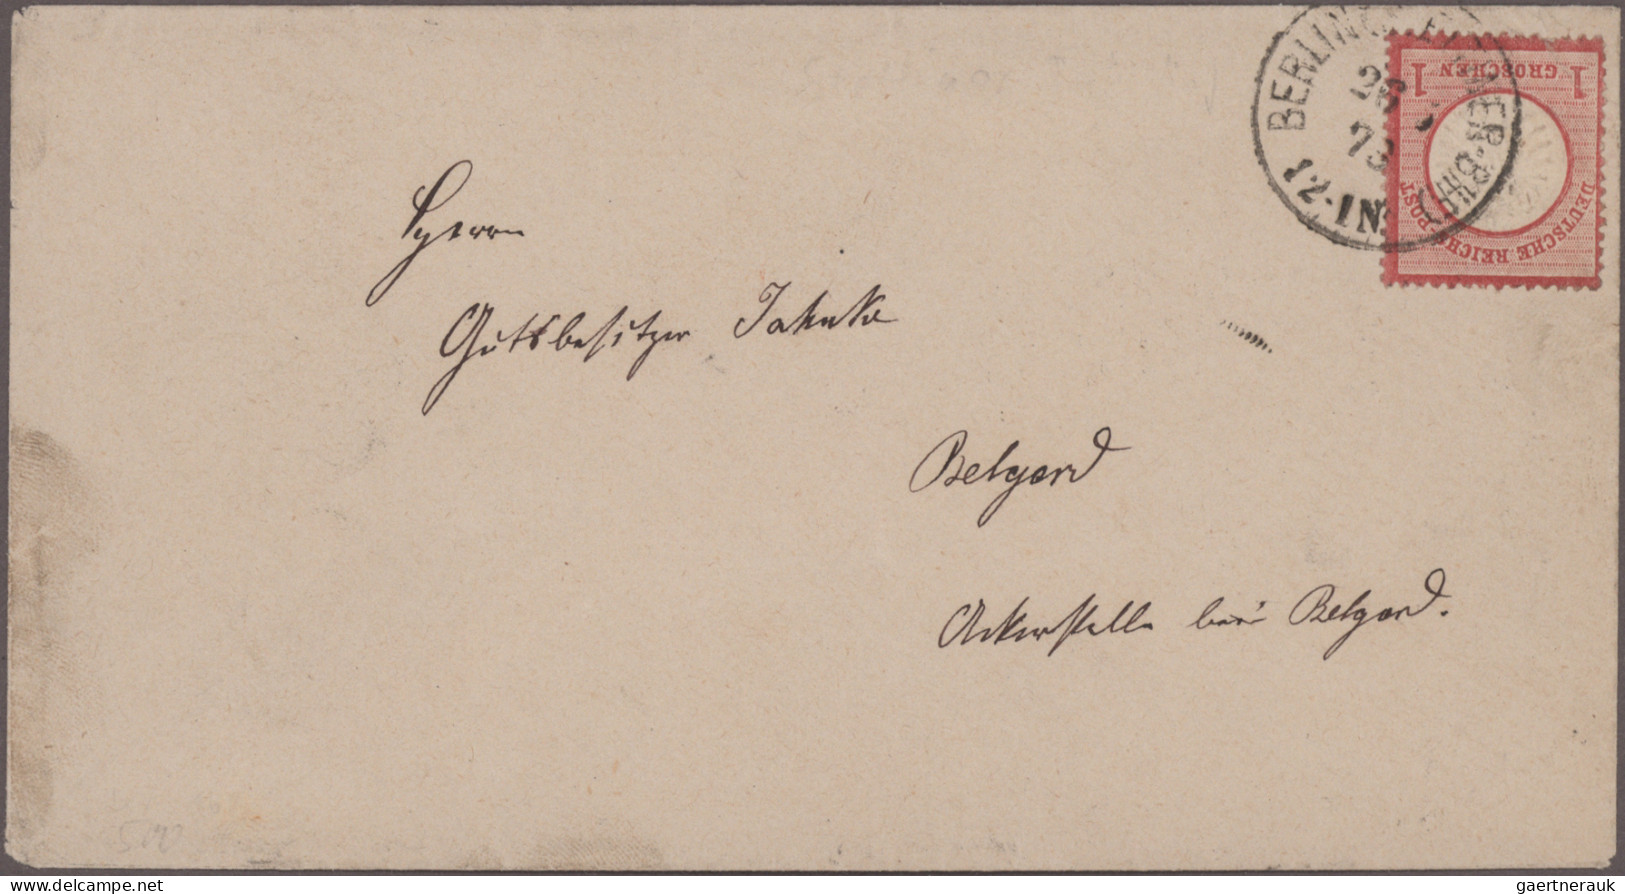 BERLIN
26
73
12-1N
1 GROSCHEN 1
DEUTSCHE REICHS-POST
Herrn
Gutsbesitzer Jahnke
Belgard
Ackerstelle bei Belgard.
500
www.delcampe.net
gaertnerauk